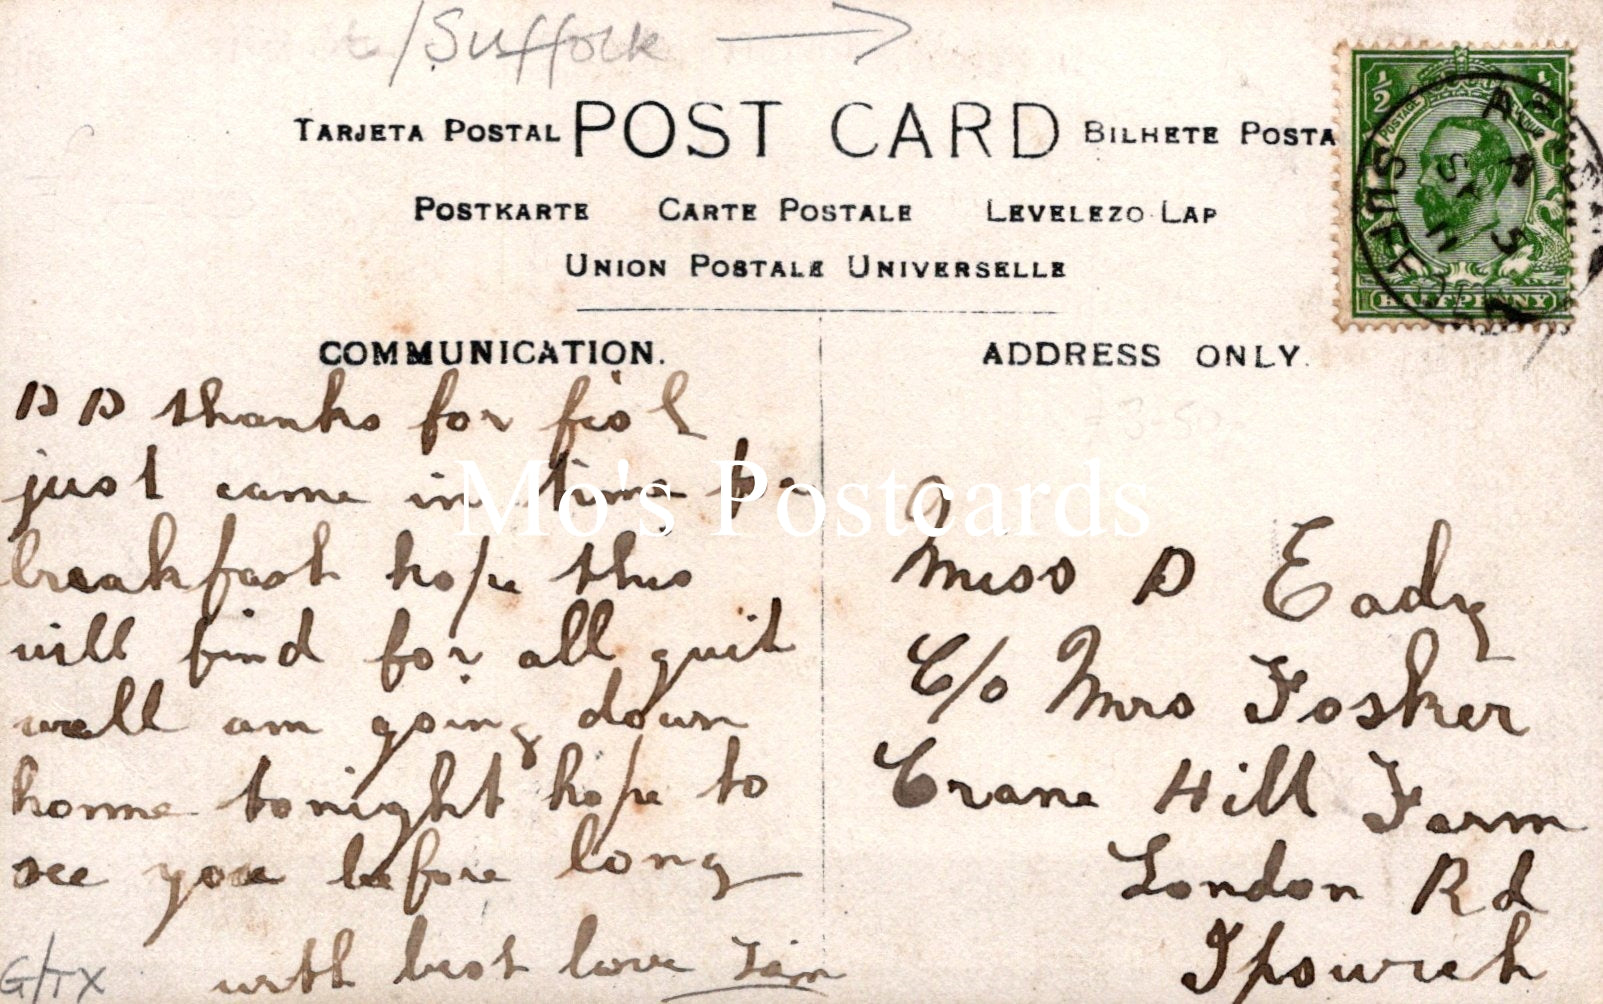 /Suffolk
TARJETA POSTAL POST CARD BILHETE POSTA
POSTKARTE CARTE POSTALE LEVELEZO LAP
UNION POSTALE UNIVERSELLE
½ ½
POSTAGE
HALFPENNY
SUFFOLK
COMMUNICATION.
D D thanks for
just came in time for
breakfast hope this
will find for all quit
well am going down
home tonight hope to
see you before long
with best love
G/TX
ADDRESS ONLY.
Miss D Eady
C/o Mrs Fosker
Crane Hill Farm
London Rd
Ipswich
Mo's Postcards